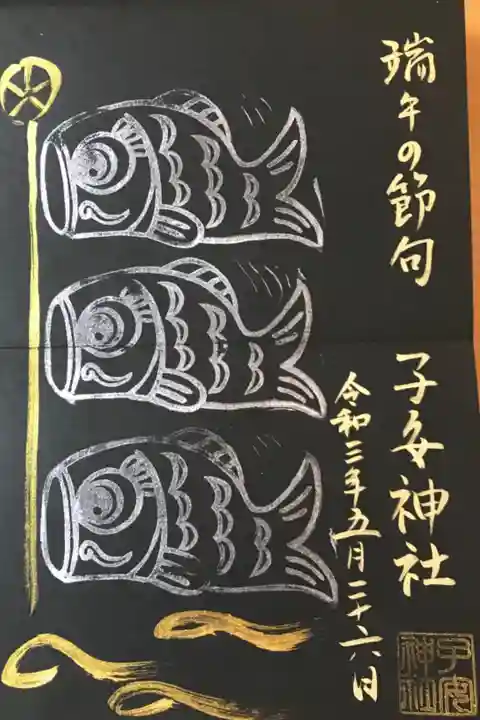 瑞午の節句
子安神社
令和三年五月二十六日
子安
神社